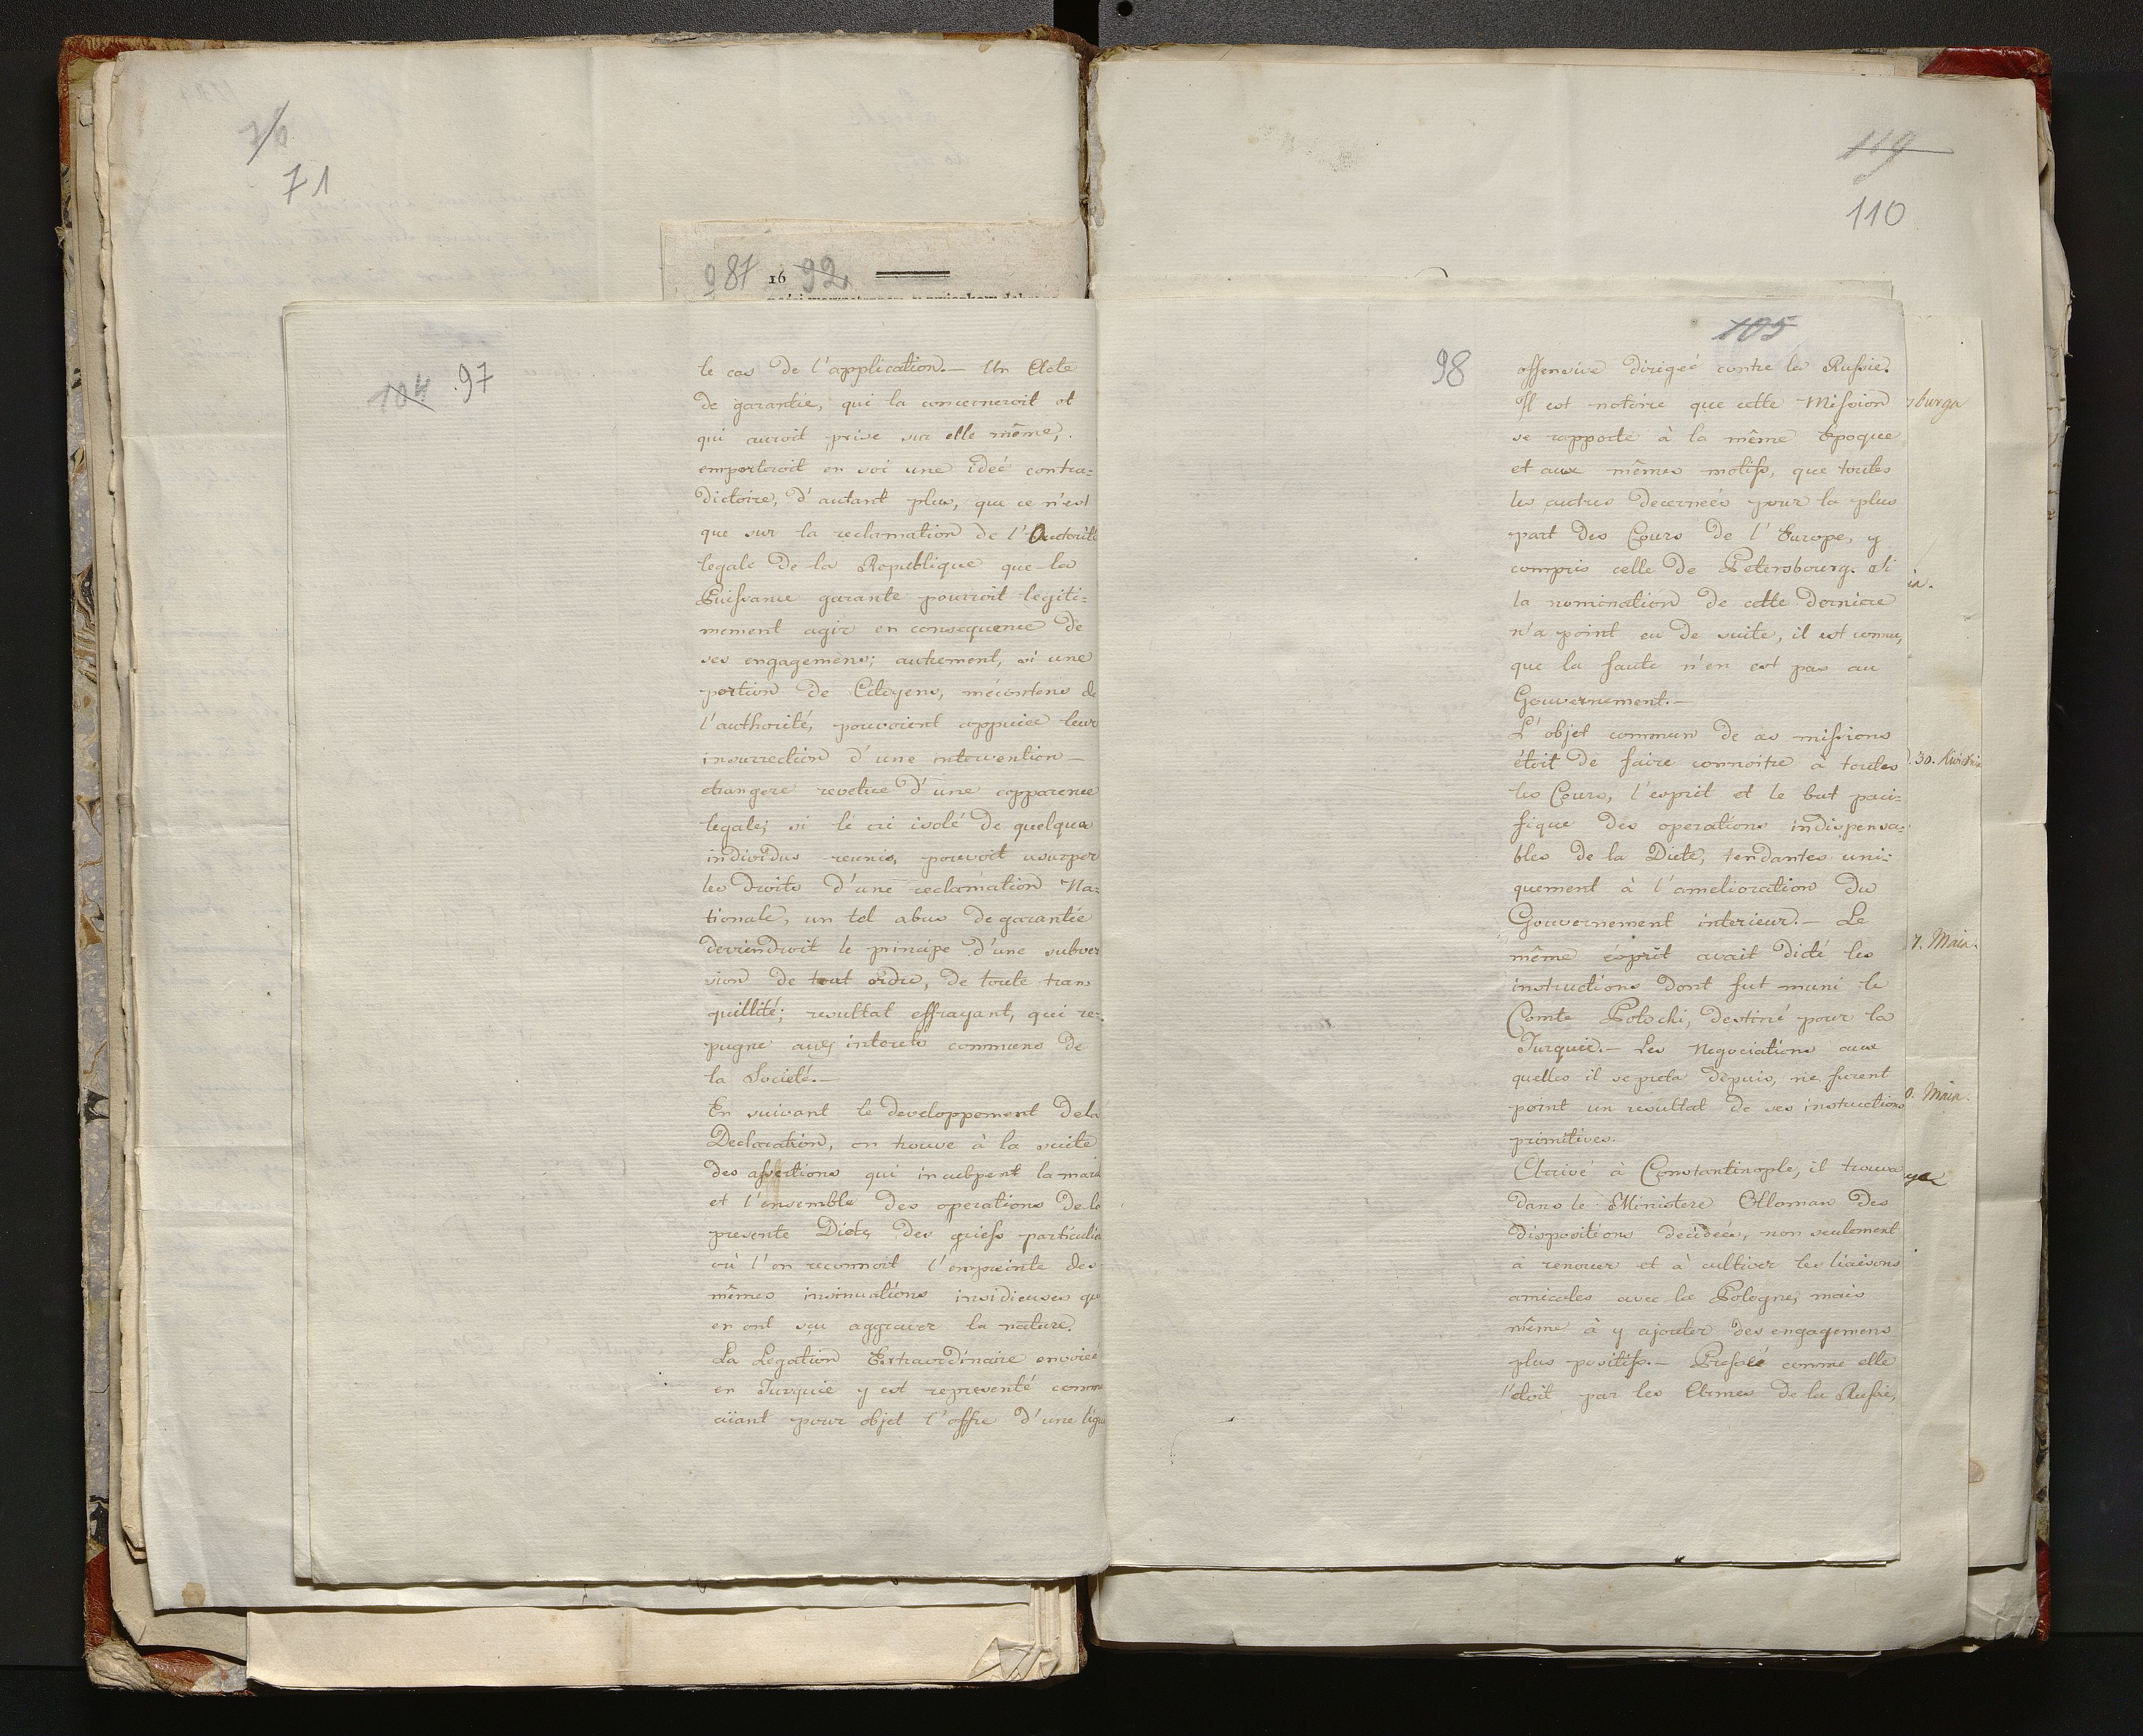 71
987 16 92
104 .97
le cas de l'application.— Un Acte
de garantie, qui la concerneroit et
qui auroit prise sur elle même,
emporteroit en soi une ideé contra=
dictoire, d'autant plus, que ce n'est
que sur la reclamation de l'Autorité
legale de la Republique que la
Puissance garante pourroit legiti=
mement agir en consequence de
ses engagemens; autrement, si une
portion de Citoyens, mécontens de
l'authorité, pouvoient appuier leur
insurrection d'une intervention—
etrangere revetue d'une apparence
legale; si le cri isolé de quelques
individus reunis, pouvoit usurper
les droits d'une reclamation Na=
tionale, un tel abus de garantie
deviendroit le principe d'une subver
sion de tout ordre, de toute tran
quillité; resultat effrayant, qui re=
pugne aux interets communs de
la Societé.—
En suivant le developpement de la
Declaration, on trouve à la suite
des assertions qui inculpent la mar
et l'ensemble des operations de la
presente Diete, des griefs particulie
où l'on reconnoit l'empreinte des
mêmes insinuations insidieuses qu
en ont sçu aggraver la nature.
La Legation Extraordinaire envoieé
en Turquie y est representé comme
aïant pour objet l'offre d'une ligue
119
110
105
98
offensive dirigeé contre la Russie.
Il est notoire que cette Mission
se rapporte à la même Epoque
et aux mêmes motifs, que toutes
les autres decerneés pour la plus
part des Cours de l'Europe, y
compris celle de Petersbourg. Si
la nomination de cette derniere
n'a point eu de suite, il est connu,
que la faute n'en est pas au
Gouvernement.—
L'objet commun de ces missions
étoit de faire connoitre à toutes
les Cours, l'esprit et le but paci=
fique des operations indispensa=
bles de la Diete, tendantes uni=
quement à l'amelioration du
Gouvernement interieur.— Le
même esprit avait dicté les
instructions dont fut muni le
Comte Potocki, destiné pour la
Turquie.— Les Negociations aux
quelles il se preta depuis, ne furent
point un resultat de ses instructions
primitives.
Arrivé à Constantinople, il trouva
dans le Ministere Ottoman des
dispositions decideés, non seulement
à renouer et à cultiver les liaisons
amicales avec la Pologne, mais
même à y ajouter des engagemens
plus positifs.— Presseé comme elle
l'etoit par les Armes de la Russie,
sburga
ia.
30. Kwietnia
7. Maia.
0. Maia.